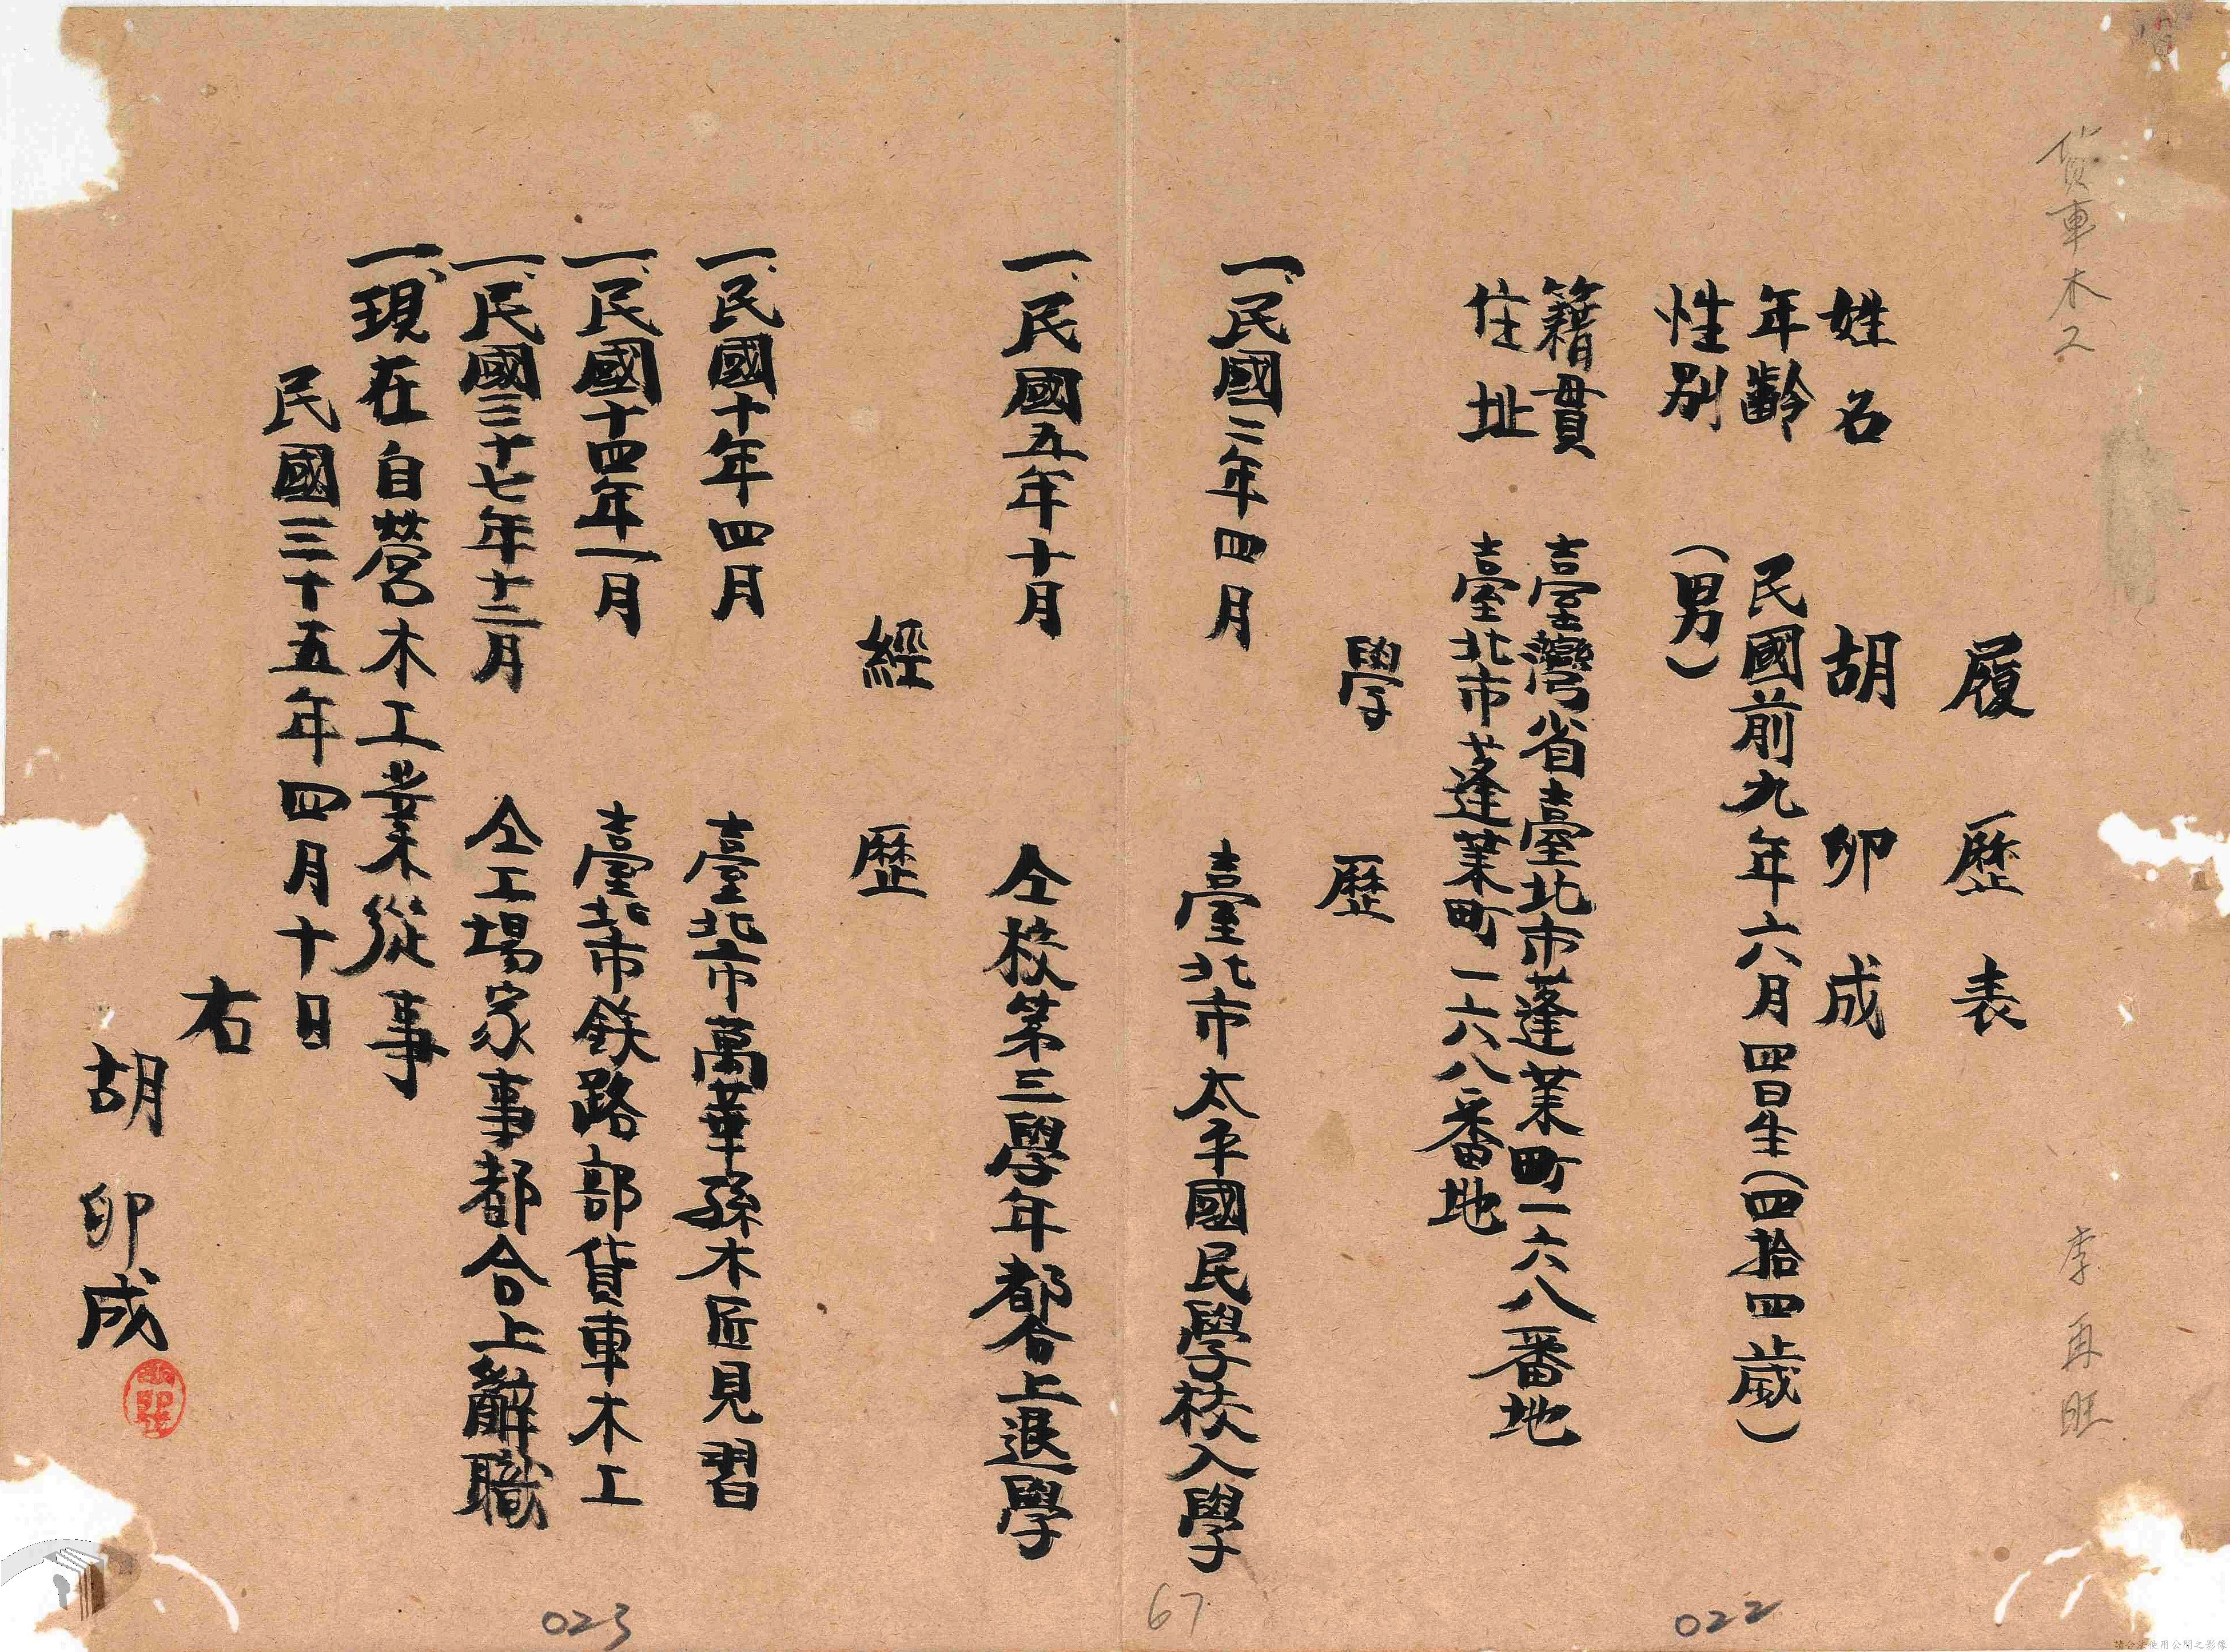 貨車木工
李再旺
履歷表
姓名 胡卯成
年齡 民國前九年六月四日生(四拾四歲)
性別 (男)
籍貫 臺灣省臺北市蓬莱町一六八番地
住址 臺北市蓬莱町一六八番地
學歷
一、民國二年四月 臺北市太平國民學校入學
一、民國五年十月 仝校第三學年都合上退學
經歷
一、民國十年四月 臺北市萬華孫木匠見習
一、民國十四年一月 臺北市鉄路部貨車木工
一、民國三十七年十二月 仝工場家事都合上辭職
一、現在自營木工業從事
民國三十五年四月十日
右
胡卯成
023
67
022